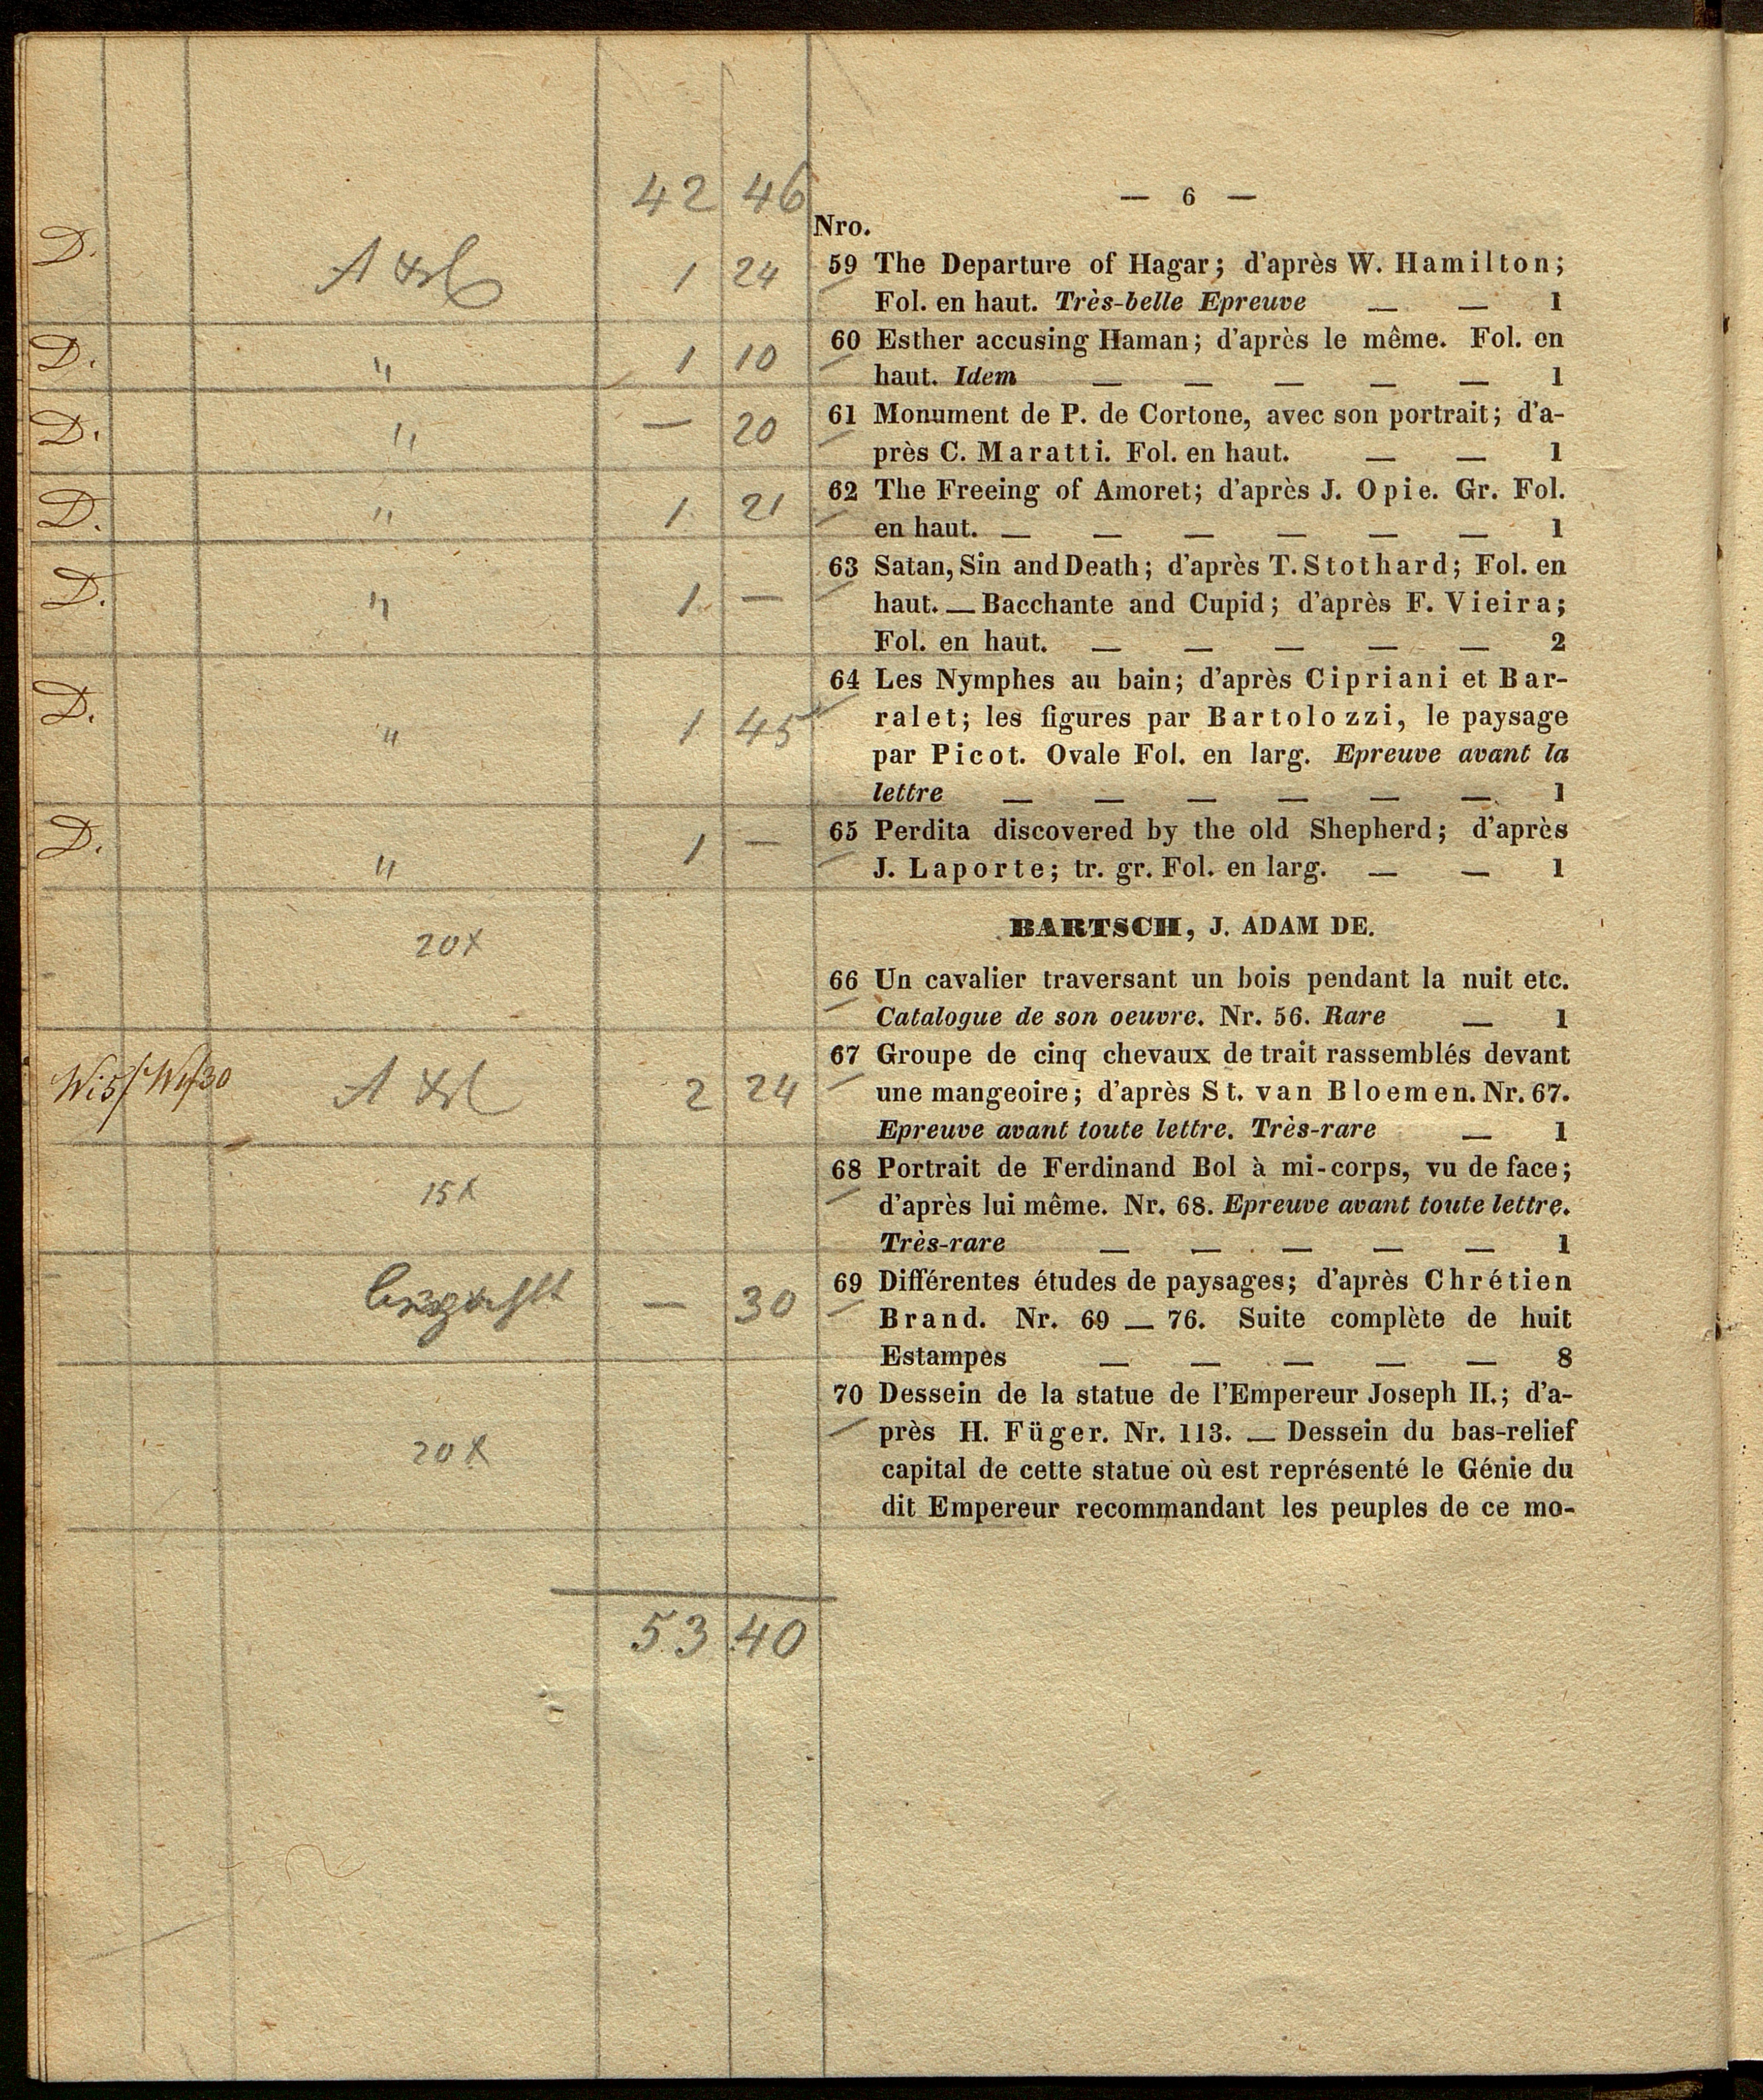 42 46
— 6 —
Nro.
D. 1 24 59 The Departure of Hagar; d'après W. Hamilton;
Fol. en haut. Très-belle Epreuve — — 1
D. " 1 10 60 Esther accusing Haman; d'après le même. Fol. en
haut. Idem — — — — — 1
D. " — 20 61 Monument de P. de Cortone, avec son portrait; d'a-
près C. Maratti. Fol. en haut. — — 1
D. " 1 21 62 The Freeing of Amoret; d'après J. Opie. Gr. Fol.
en haut. — — — — — — 1
D. " 1 — 63 Satan, Sin and Death; d'après T. Stothard; Fol. en
haut. — Bacchante and Cupid; d'après F. Vieira;
Fol. en haut. — — — — — 2
D. " 1 45 64 Les Nymphes au bain; d'après Cipriani et Bar-
ralet; les figures par Bartolozzi, le paysage
par Picot. Ovale Fol. en larg. Epreuve avant la
lettre — — — — — — 1
D. " 1 — 65 Perdita discovered by the old Shepherd; d'après
J. Laporte; tr. gr. Fol. en larg. — — 1
BARTSCH, J. ADAM DE.
20x 66 Un cavalier traversant un bois pendant la nuit etc.
Catalogue de son oeuvre. Nr. 56. Rare — 1
2 24 67 Groupe de cinq chevaux de trait rassemblés devant
une mangeoire; d'après St. van Bloemen. Nr. 67.
Epreuve avant toute lettre. Très-rare — 1
15x 68 Portrait de Ferdinand Bol à mi-corps, vu de face;
d'après lui même. Nr. 68. Epreuve avant toute lettre.
Très-rare — — — — — 1
— 30 69 Différentes études de paysages; d'après Chrétien
Brand. Nr. 69 — 76. Suite complète de huit
Estampes — — — — — 8
20x 70 Dessein de la statue de l'Empereur Joseph II.; d'a-
près H. Füger. Nr. 113. — Dessein du bas-relief
capital de cette statue où est représenté le Génie du
dit Empereur recommandant les peuples de ce mo-
53 40